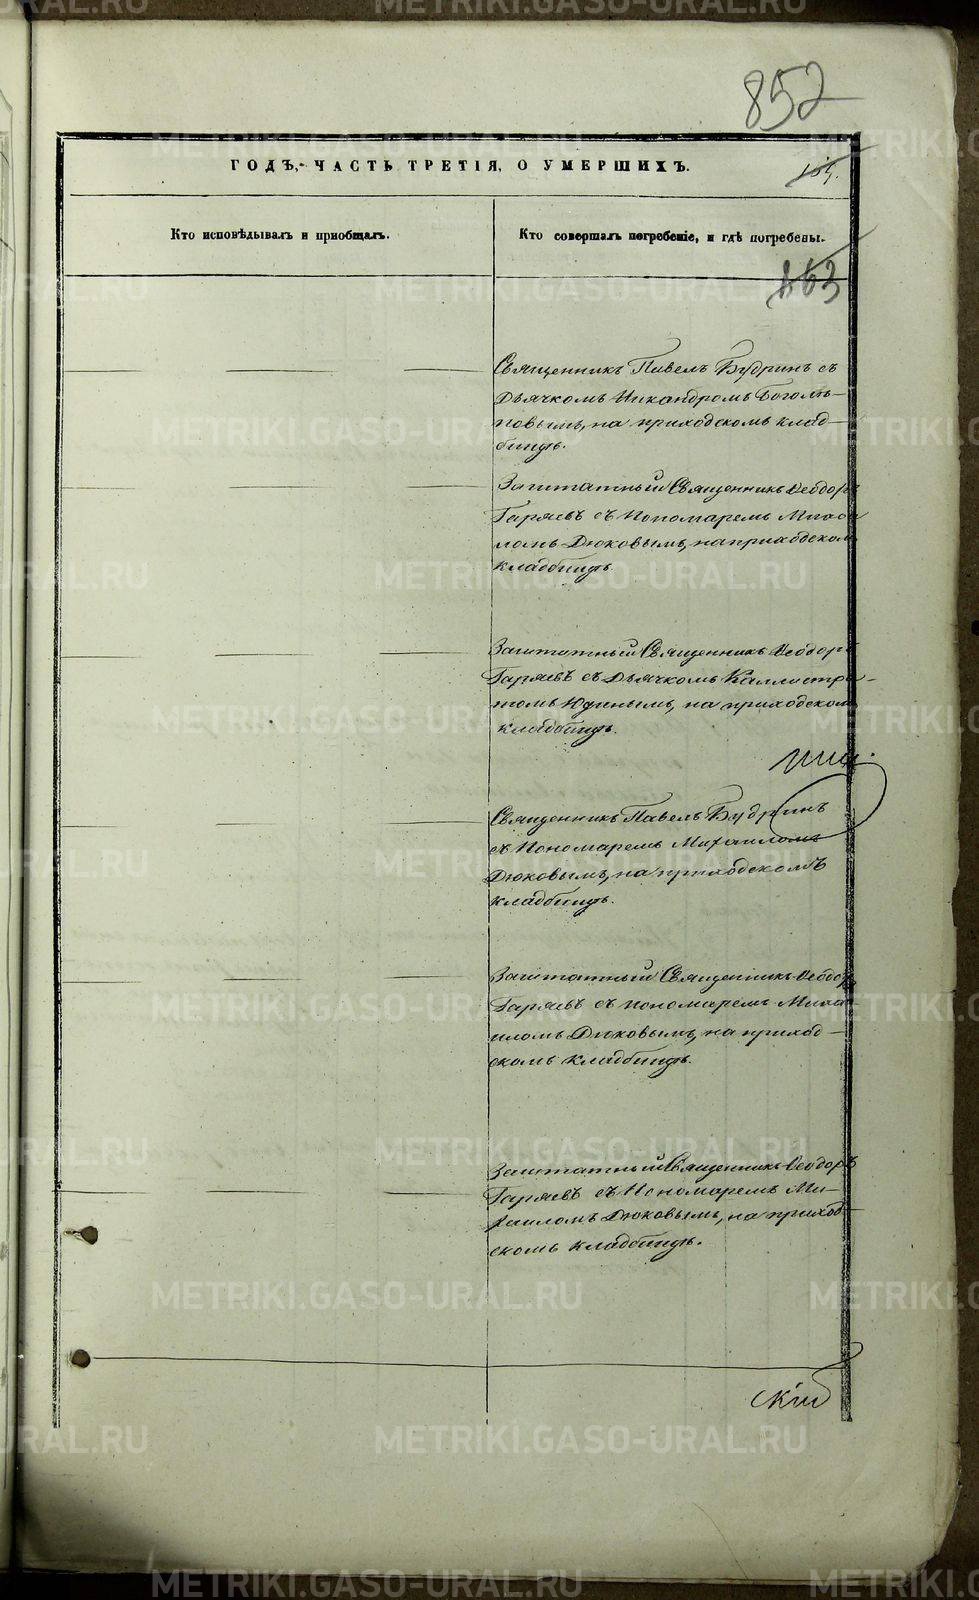 852
ГОДЪ, ЧАСТЬ ТРЕТІЯ, О УМЕРШИХЪ.
Кто исповѣдывалъ и приобщалъ.
Кто совершалъ погребеніе, и гдѣ погребены.
163
Священникъ Павелъ Будринъ съ
Дьячкомъ Никандромъ Боголѣ-
повымъ, на приходскомъ клад-
бищѣ.
Заштатный Священникъ Ѳеодоръ
Гаряевъ съ Пономаремъ Михаи
ломъ Дюковымъ, на приходскомъ
кладбищѣ.
Заштатный Священникъ Ѳеодоръ
Гаряевъ съ Дьячкомъ Каллистра-
томъ Юдинымъ, на приходскомъ
кладбищѣ.
Священникъ Павелъ Будринъ
съ Пономаремъ Михаиломъ
Дюковымъ, на приходскомъ
кладбищѣ.
Заштатный Священникъ Ѳеодоръ
Гаряевъ съ Пономаремъ Миха-
иломъ Дюковымъ, на приход-
скомъ кладбищѣ.
Заштатный Священникъ Ѳеодоръ
Гаряевъ съ Пономаремъ Ми-
хаиломъ Дюковымъ, на приход-
скомъ кладбищѣ.
METRIKI.GASO-URAL.RU